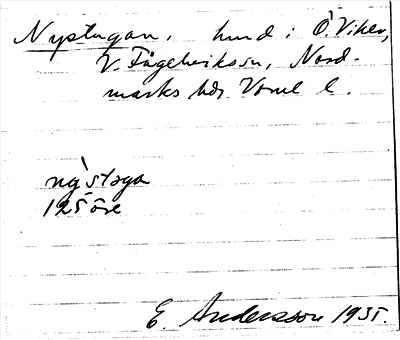 Nystugan, hmd i Ö. Viker,
V. Fågelviks sn, Nord-
marks hd, Vrml l.
ny`stoga
125 öre
E. Andersson 1935.